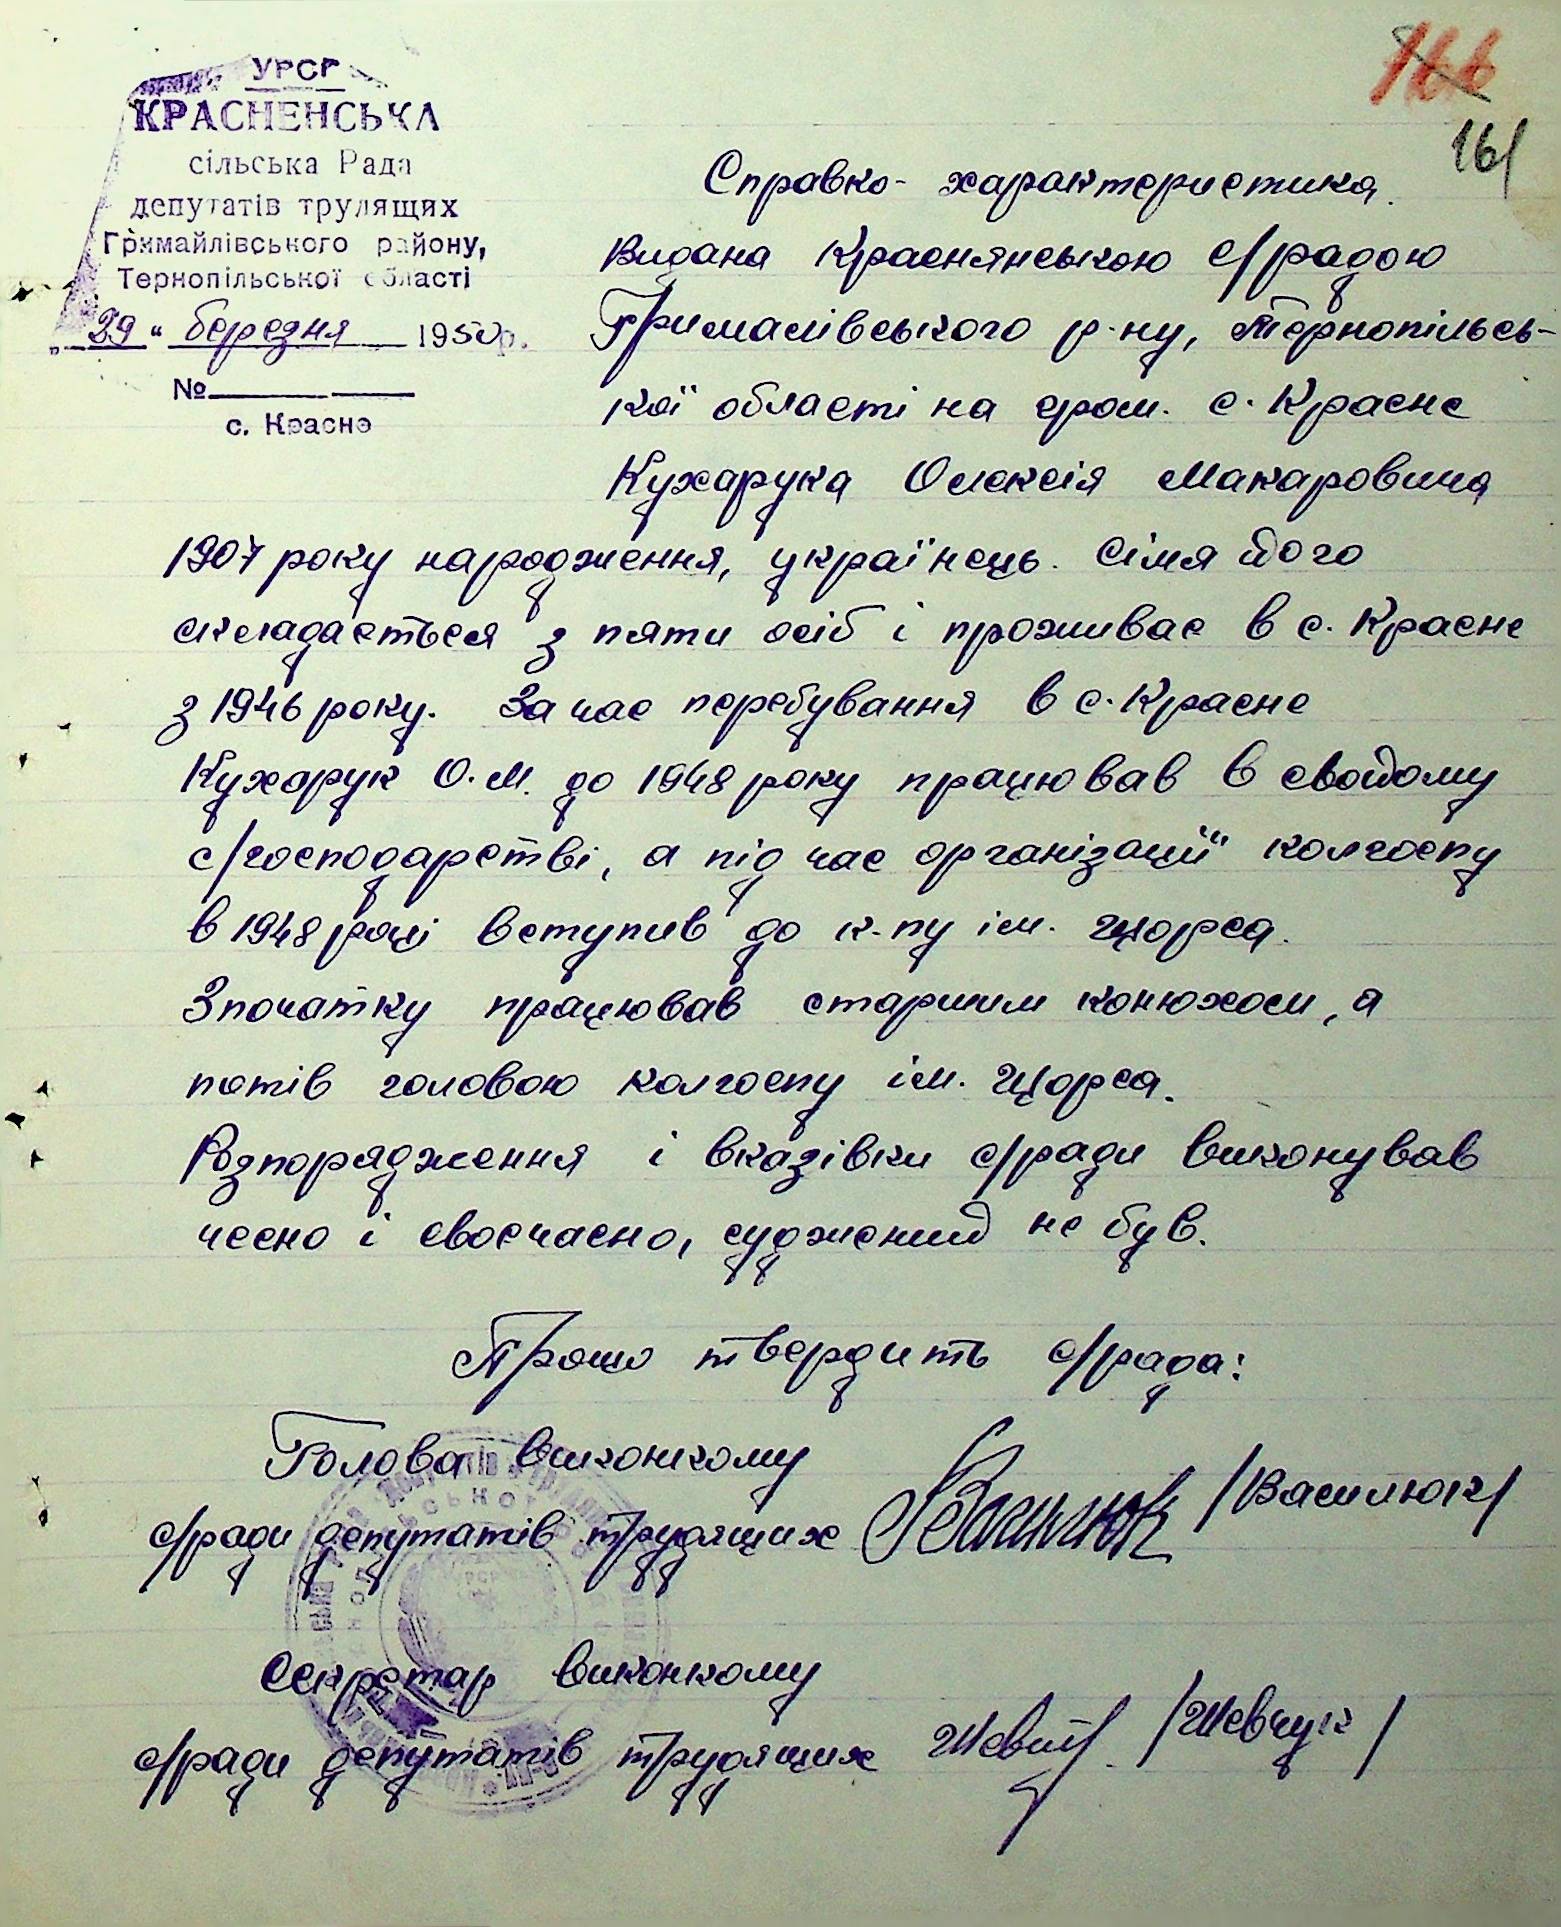 166
161
УРСР
КРАСНЕНСЬКА
сільська Рада
депутатів трудящих
Гримайлівського району,
Тернопільської області
„29“ березня 1950р.
№
с. Красне
Справко- характеристика.
Видана Краснянською с/радою
Грималівського р-ну, Тернопільсь-
кої області на гром. с. Красне
Кухарука Олексія Макаровича
1907 року народження, українець. Сімя його
складається з пяти осіб і проживає в с. Красне
з 1946 року. За час перебування в с. Красне
Кухарук О.М. до 1948 року працював в свойому
с/господарстві, а під час організації колгоспу
в 1948 році вступив до к-пу ім. Щорса.
Зпочатку працював старшим конюхом, а
потів головою колгоспу ім. Щорса.
Розпорядження і вказівки с/ради виконував
чесно і своєчасно, суджений не був.
Прошо твердить с/рада:
Голова виконкому
с/ради депутатів трудящих Василюк /Василюк/
Секретар виконкому
с/ради депутатів трудящих /Шевчук/